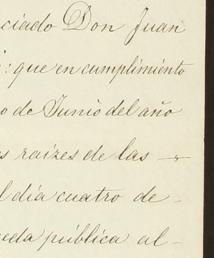 ciado Don Juan
: que en cumplimiento
o de Junio del año
s raizes de las
l día cuatro de-
eda pública al-